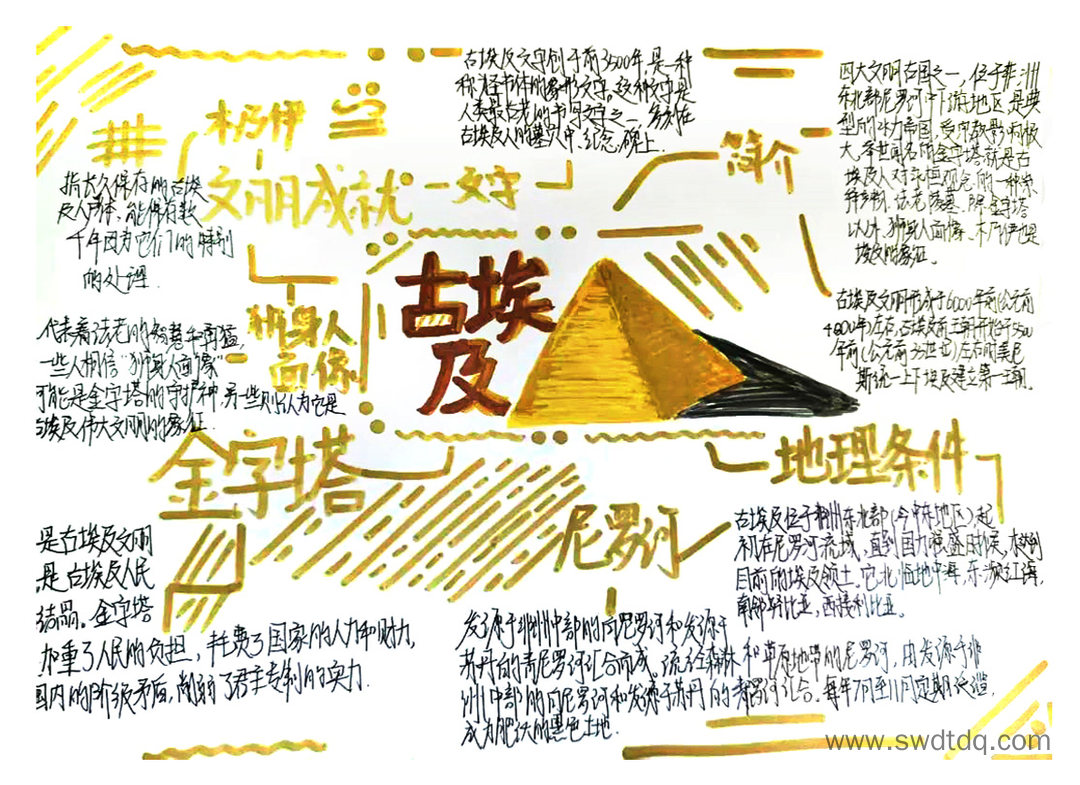 古埃及
文明成就一文字
古埃及文字创于前3500年,是一种
称怪书体的象形文字。这种文字是
人类最古老的书写文字之一,多刻在
古埃及人的墓穴中、纪念碑上.
简介
四大文明古国之一,位于非洲
东北部尼罗河中下游地区,是典
型的水力帝国,受宗教影响极
大。举世闻名的金字塔就是古
埃及人对永恒观念的一种崇
拜产物,法老陵墓.除金字塔
以外,狮身人面像、木乃伊也是
埃及的象征。
古埃及文明形成于6000年前(公元前
4000年)左右,古埃及前王朝开始于5500
左右时美尼
斯统一上下埃及建立第一王朝.
木乃伊
指长久保存的古埃
及人尸体、能保存数
千年因为它们的特别
的处理.
狮身人
面像
代表着法老的智慧和勇猛,
一些人相信“狮身人面像”
可能是金字塔的守护神,另一些则认为它是
古埃及伟大文明的象征.
金字塔
是古埃及文明
是古埃及人民
结晶。金字塔
加重了人民的负担,耗费了国家的人力和财力,
国内的阶级矛盾,削弱了君主专制的实力.
尼罗河
发源于非洲中部的白尼罗河和发源于
苏丹的青尼罗河汇合而成。流经森林和草原地带的尼罗河,由发源于非
州中部的白尼罗河和发源于苏丹的青尼罗河汇合.每年7月至11月定期泛滥,
成为肥沃的黑色土地.
地理条件
古埃及位于非州东北部(今中东地区)起
初在尼罗河流域,直到国力强盛时候,才达到
目前的埃及领土,它北临地中海,东濒红海,
南邻努比亚,西接利比亚。
www.swdtdq.com